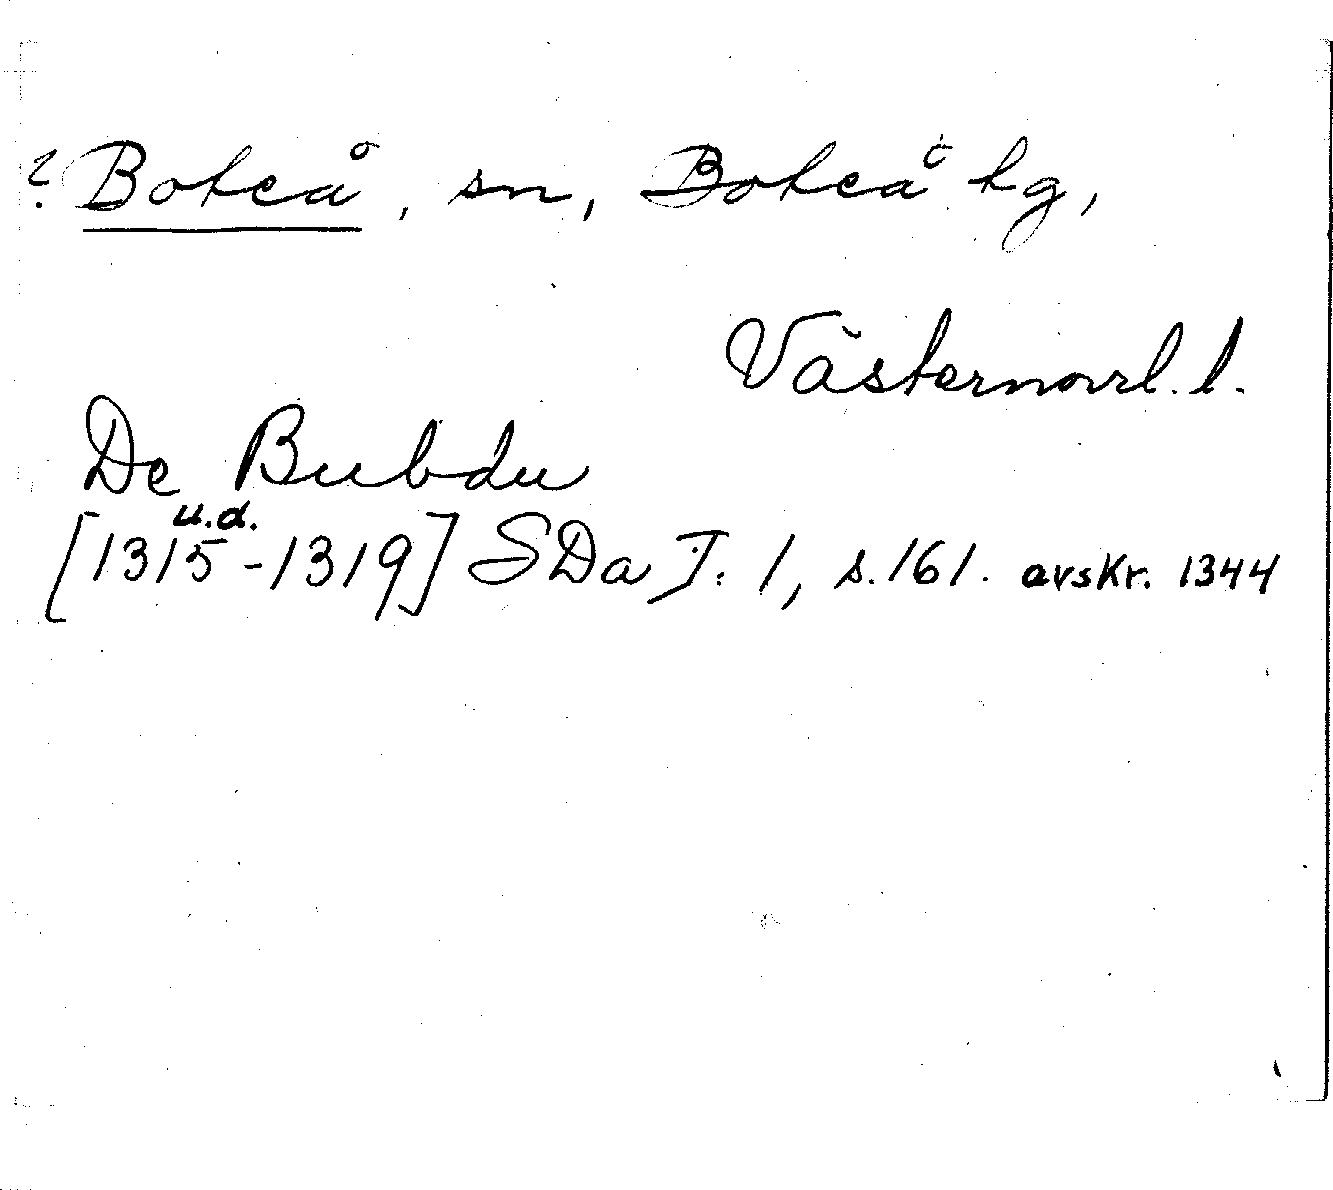 ? Boteå, sn, Boteå tg,
Västernorrl. l.
De Bubdu
u.d.
[1315-1319] SDa I: 1, s. 161. avskr. 1344